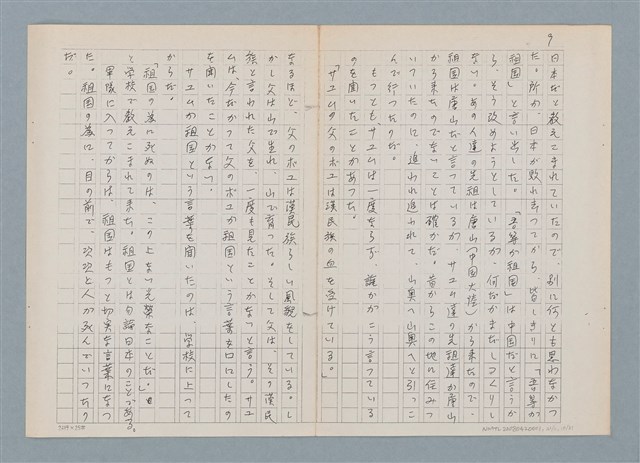 9
日本だと教えこまれていたので、別に何とも思わなかつ
た。所が、日本が敗れさつてから、皆しきりに「吾等が
祖国」と言い出した。「吾等が祖国」は中国だと言うか
ら、そう改めようとしているが、何だかまだしつくりし
ない。あの人達の先祖は唐山（中国大陸）から来たので、
祖国は唐山だと言っているが、サユムの達の先祖達が唐山
から来たのでないことは確かだ。昔からこの地に住みつ
いていたのに、追われ追われて、山奥へ山奥へと引っこ
んで行つたのだ。
もっとも、サユムは一度ならず、誰かがこう言っている
のを聞いたことがあつた。
「サユムの父のボユは漢民族の血を受けている。」
なるほど、父のボユは漢民族らしい風貌をしている。し
かし父は山で生れ、山で育つた。そして父は、その漢民
族と言われた父を、一度も見たことがなつと言う。サユ
ムは、今だかつて父のボユが祖国という言葉を口にしたの
を聞いたことがない。
サユムが祖国という言葉を聞いたのは、学校に上って
からだ。
「祖国の為に死ぬのは、この上ない光栄なことだ。」と
と学校で教えこまれて来た。祖国とは勿論日本のことである。
軍隊に入ってからは、祖国はもつと切実な言葉になつ
た。祖国の為に、目の前で、次次と人が死んでいつたの
だ。